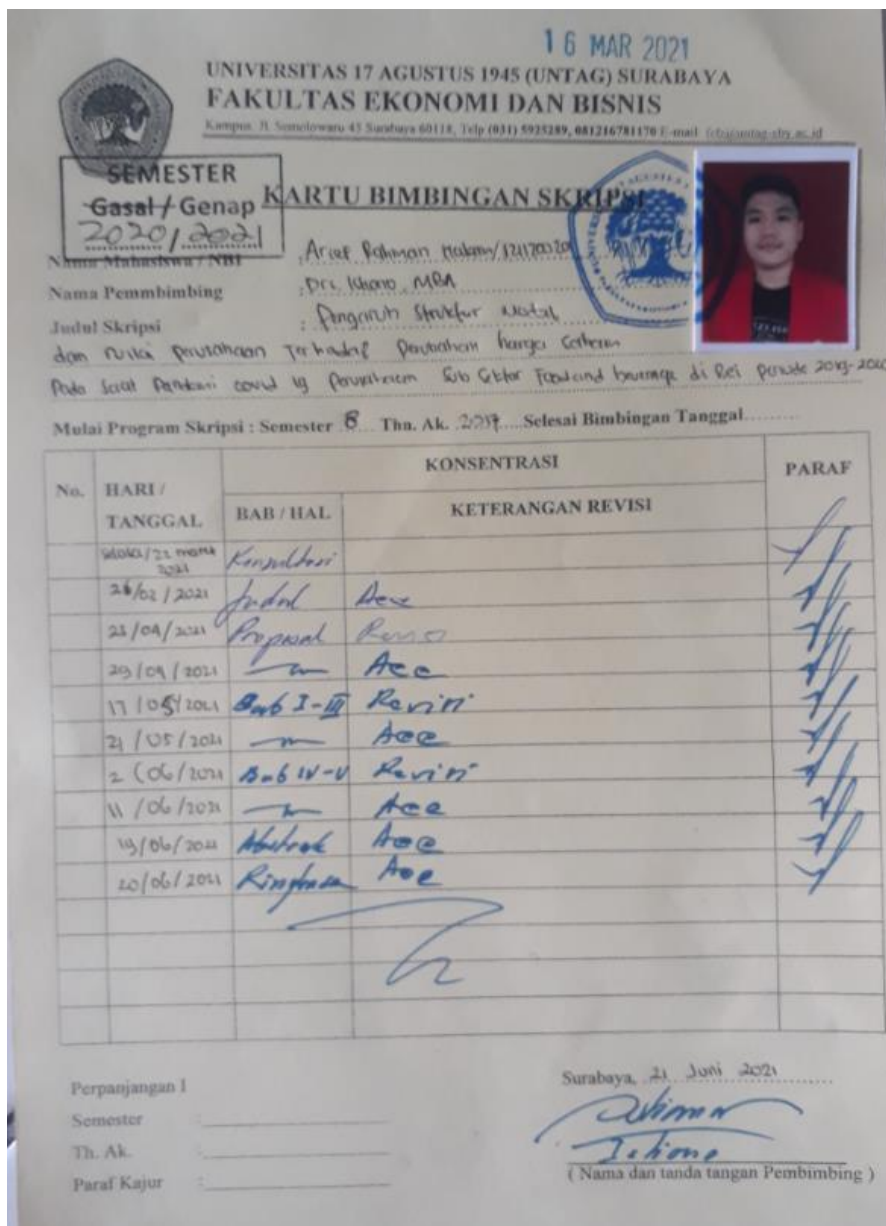 16 MAR 2021
UNIVERSITAS 17 AGUSTUS 1945 (UNTAG) SURABAYA
FAKULTAS EKONOMI DAN BISNIS
Kampus. Jl. Semolowaru 45 Surabaya 60118, Telp (031) 5925289, 081216781170 E-mail
SEMESTER
Gasal / Genap
2020/2021
KARTU BIMBINGAN SKRIPSI
Nama Mahasiswa / NBI : Arief Rahman Hakim /
Nama Pemmbimbing : Drs. MBA
Judul Skripsi : Pengaruh Struktur Modal
dan nilai perusahaan Terhadap perubahan harga
Pada saat Pandemi covid 19 perusahaan Sub Sektor Food and beverage di Bei periode 2019-2020
Mulai Program Skripsi : Semester 8 Thn. Ak. Selesai Bimbingan Tanggal
No. HARI / TANGGAL KONSENTRASI PARAF
BAB / HAL KETERANGAN REVISI
2021 Konsultasi
/02/2021 Judul Acc
/2021 Proposal Revisi
2021 Acc
17/05/2021 Bab I-III Revisi
21/05/2021 Acc
2/06/2021 Bab IV-V Revisi
11/06/2021 Acc
19/06/2021 Abstrak Acc
20/06/2021 Acc
Perpanjangan I
Semester :
Th. Ak. :
Paraf Kajur :
Surabaya, 21 Juni 2021
( Nama dan tanda tangan Pembimbing )